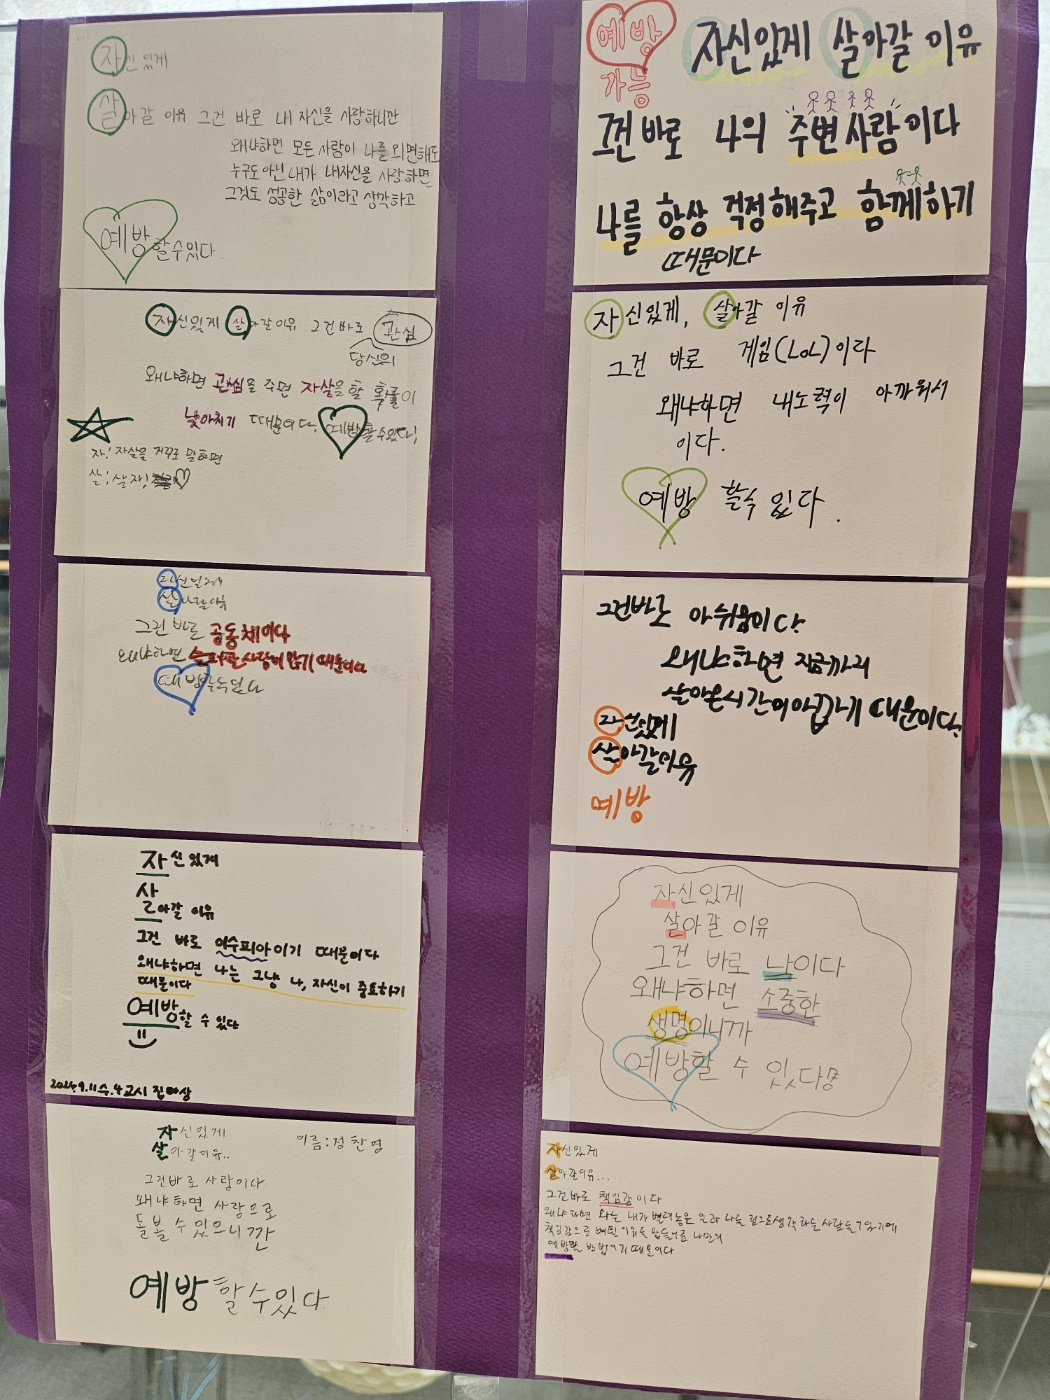 자신있게
살아갈 이유 그건 바로 내 자신을 사랑하니깐
왜냐하면 모든 사람이 나를 외면해도
누구도 아닌 내가 내자신을 사랑하면
그것도 성공한 삶이라고 생각하고
예방 할수있다
자신있게 살아갈이유 그건바로 관심
당신의
왜냐하면 관심을 주면 자살을 할 확률이
낮아지기 때문이다. 예방할수있다!
자: 자살을 거꾸로 말하면
살: 살자!
살아갈이유
그건 바로 공동체이다
왜냐하면 슬퍼할 사람이 많기 때문이다
예방할수있다
자신있게
살아갈 이유
그건 바로 이수피아이기 때문이다
왜냐하면 나는 그냥 나, 자신이 중요하기
때문이다
예방할 수 있다
2024.9.11 수. 4교시 진마상
자신있게
살아갈이유..
이름:정찬영
그건바로 사랑이다
왜냐하면 사랑으로
돌볼 수 있으니깐
예방할수있다
예방
가능
자신있게 살아갈 이유
그건바로 나의 "주변사람"이다
나를 항상 걱정해주고 함께하기
때문이다
자신있게, 살아갈 이유
그건 바로 게임(LoL)이다
왜냐하면 내노력이 아까워서
이다.
예방 할수 있다.
그건바로 아쉬움이다
왜냐하면 지금까지
살아온시간이아깝기 때문이다.
자신있게
살아갈이유
예방
자신있게
살아갈 이유
그건 바로 나이다
왜냐하면 소중한
생명이니까
예방할 수 있다
자신있게
살아갈이유...
그건바로 책임감이다
왜냐하면 나는 내가 벌려놓은 일과 나를 힘으로생각하는 사람들이 있기에
책임감으로 이유를 만들어 나만의
예방할 방법이기 때문이다